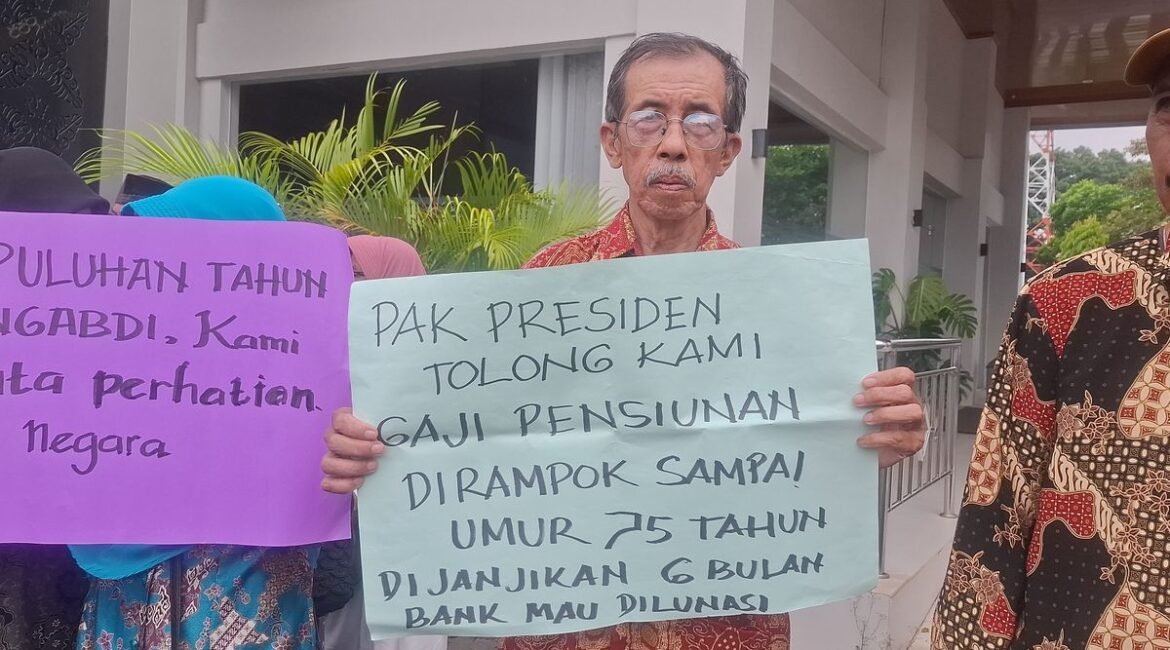 PULUHAN TAHUN
NGABDI. Kami
perhatian.
Negara
PAK PRESIDEN
TOLONG KAMI
GAJI PENSIUNAN
DIRAMPOK SAMPAI
UMUR 75 TAHUN
DIJANJIKAN 6 BULAN
BANK MAU DILUNASI